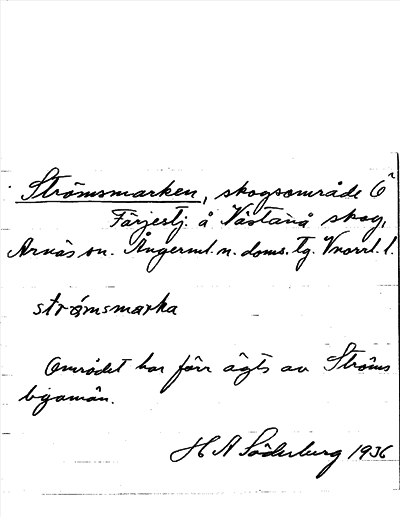 Strömsmarken, skogsområde 6
Färjestj. å Västanå skog,
Arnäs sn. Ångerml. n. doms. tg. Vnorrl. l.
strǫ́msmarka
Området har förr ägts av Ströms
byamän.
H A Söderburg 1936